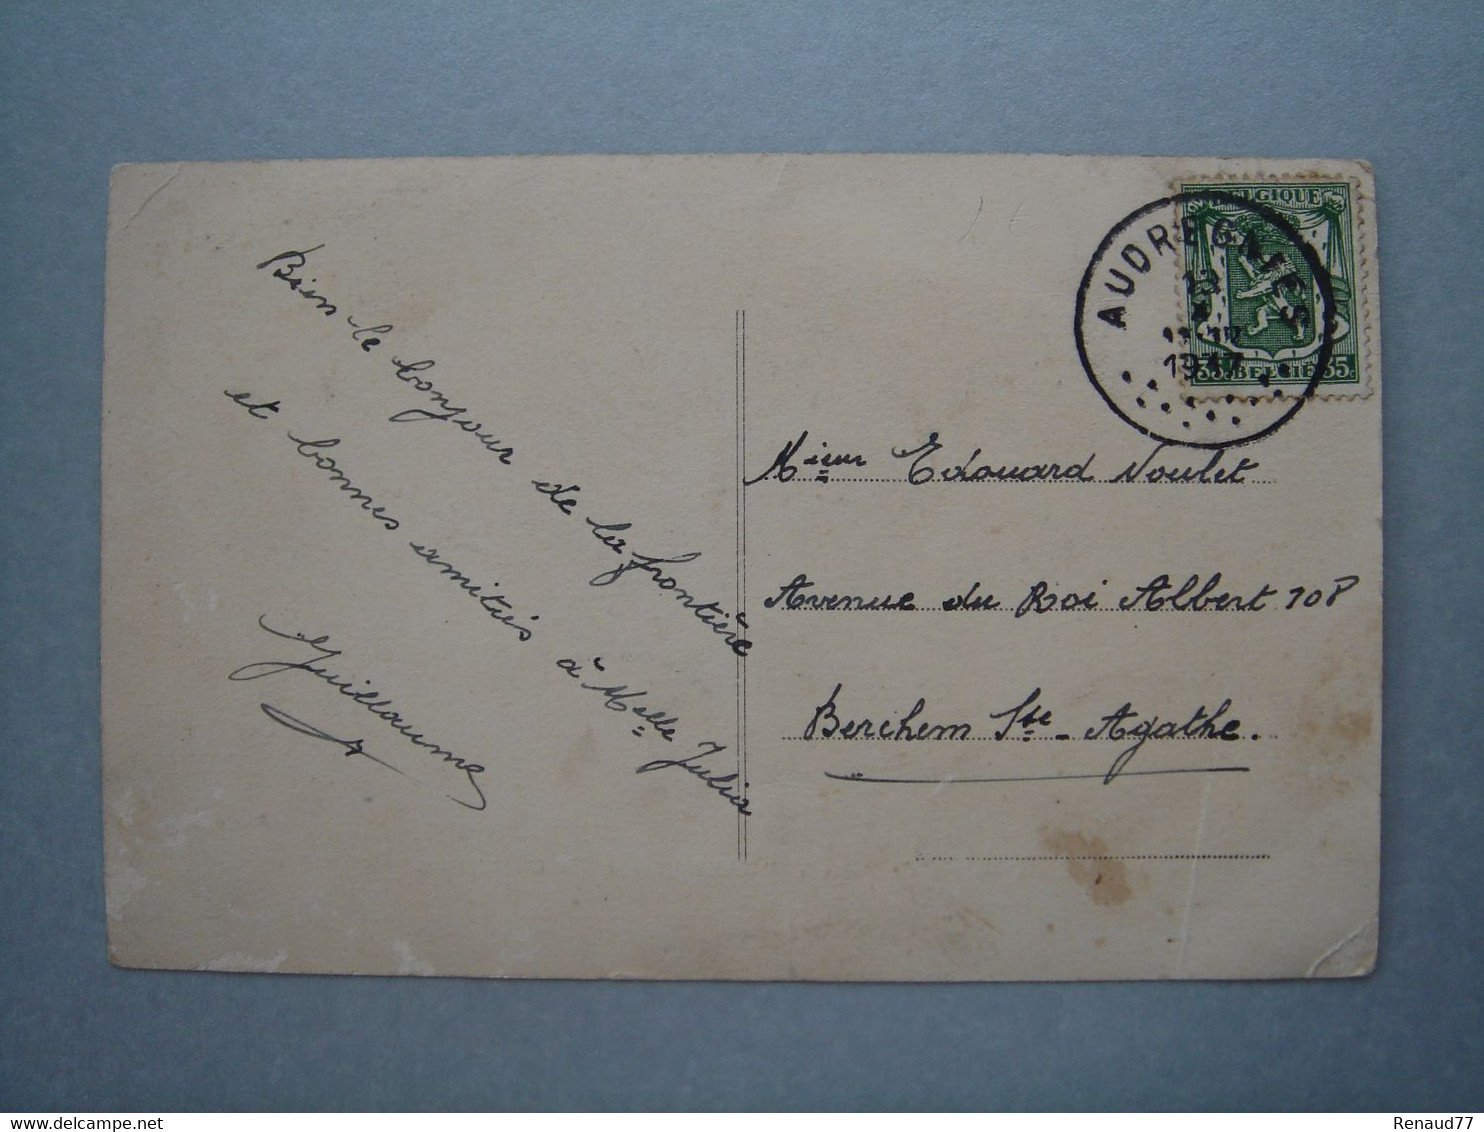 Bien le bonjour de la frontière
et bonnes amitiés à Melle Julia
Guillaume
BELGIQUE
AUDREGNIES
13
1947
35c BELGIË 35c
Mieur Edouard Noulet
Avenue du Roi Albert 108
Berchem Ste-Agathe.
Renaud77
delcampe.net